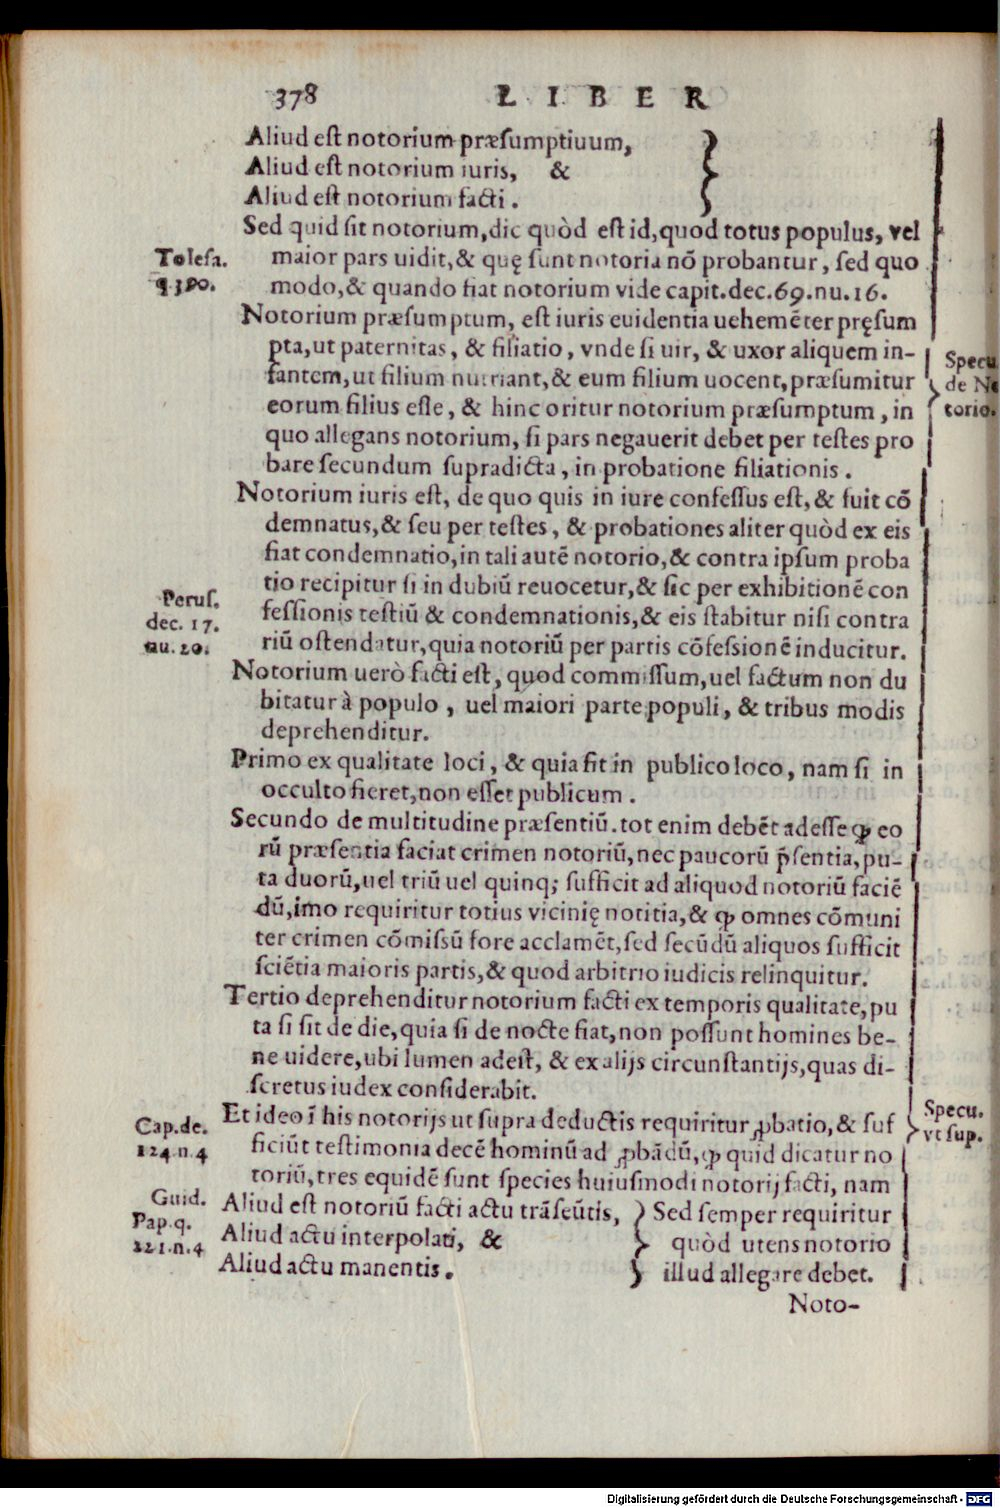 378 LIBER
Aliud est notorium præsumptiuum,
Aliud est notorium iuris, &
Aliud est notorium facti.
Sed quid sit notorium, dic quòd est id, quod totus populus, vel
Tolesa.
q.390.
maior pars uidit, & quę sunt notoria nõ probantur, sed quo
modo, & quando fiat notorium vide capit. dec. 69. nu. 16.
Notorium præsumptum, est iuris euidentia uehemẽter pręsum
pta, ut paternitas, & filiatio, vnde si uir, & uxor aliquem in-
fantem, ut filium nutriant, & eum filium uocent, præsumitur
eorum filius esse, & hinc oritur notorium præsumptum, in
Specu.
de No
torio.
quo allegans notorium, si pars negauerit debet per testes pro
bare secundum supradicta, in probatione filiationis.
Notorium iuris est, de quo quis in iure confessus est, & fuit cõ
demnatus, & seu per testes, & probationes aliter quòd ex eis
fiat condemnatio, in tali autẽ notorio, & contra ipsum proba
tio recipitur si in dubiũ reuocetur, & sic per exhibitionẽ con
Perus.
dec. 17.
nu. 20.
fessionis testiũ & condemnationis, & eis stabitur nisi contra
riũ ostendatur, quia notoriũ per partis cõfessionẽ inducitur.
Notorium uerò facti est, quod commissum, uel factum non du
bitatur à populo, uel maiori parte populi, & tribus modis
deprehenditur.
Primo ex qualitate loci, & quia fit in publico loco, nam si in
occulto fieret, non esset publicum.
Secundo de multitudine præsentiũ. tot enim debẽt adesse ꝙ eo
rũ præsentia faciat crimen notoriũ, nec paucorũ p̃sentia, pu-
ta duorũ, uel triũ uel quinq; sufficit ad aliquod notoriũ faciẽ
dũ, imo requiritur totius vicinię notitia, & ꝙ omnes cõmuni
ter crimen cõmissũ fore acclamẽt, sed secũdũ aliquos sufficit
sciẽtia maioris partis, & quod arbitrio iudicis relinquitur.
Tertio deprehenditur notorium facti ex temporis qualitate, pu
ta si sit de die, quia si de nocte fiat, non possunt homines be-
ne uidere, ubi lumen adest, & ex alijs circunstantijs, quas di-
scretus iudex considerabit.
Et ideo ĩ his notorijs ut supra deductis requiritur ꝓbatio, & suf
Specu.
vt sup.
Cap. de.
124. n. 4
ficiũt testimonia decẽ hominũ ad ꝓbãdũ, ꝙ quid dicatur no
toriũ, tres equidẽ sunt species huiusmodi notorij facti, nam
Guid.
Pap. q.
221. n. 4
Aliud est notoriũ facti actu trãseũtis,
Aliud actu interpolati, &
Aliud actu manentis.
Sed semper requiritur
quòd utens notorio
illud allegare debet.
Noto-
Digitalisierung gefördert durch die Deutsche Forschungsgemeinschaft - DFG